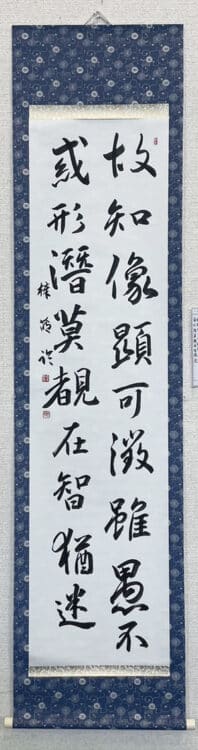 故知像顕可徴雖愚不
惑形潛莫覩在智猶迷